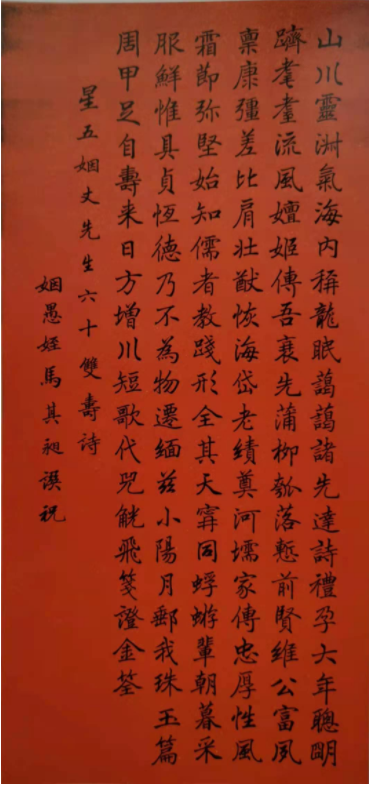 山川靈淑氣海內稱龍眠藹藹諸先達詩禮孕大年聰明
躋耄耋流風嬗姬傳吾衰先蒲柳瓠落慙前賢維公富夙
稟康彊差比肩壯猷恢海岱老績奠河壖家傳忠厚性風
霜節弥堅始知儒者教踐形全其天寗同蜉蝣輩朝暮采
服鮮惟具貞恆德乃不為物遷緬茲小陽月郵我珠玉篇
周甲足自壽来日方增川短歌代兕觥飛箋證金荃
星五姻丈先生六十雙壽詩
姻愚姪馬其昶譔祝